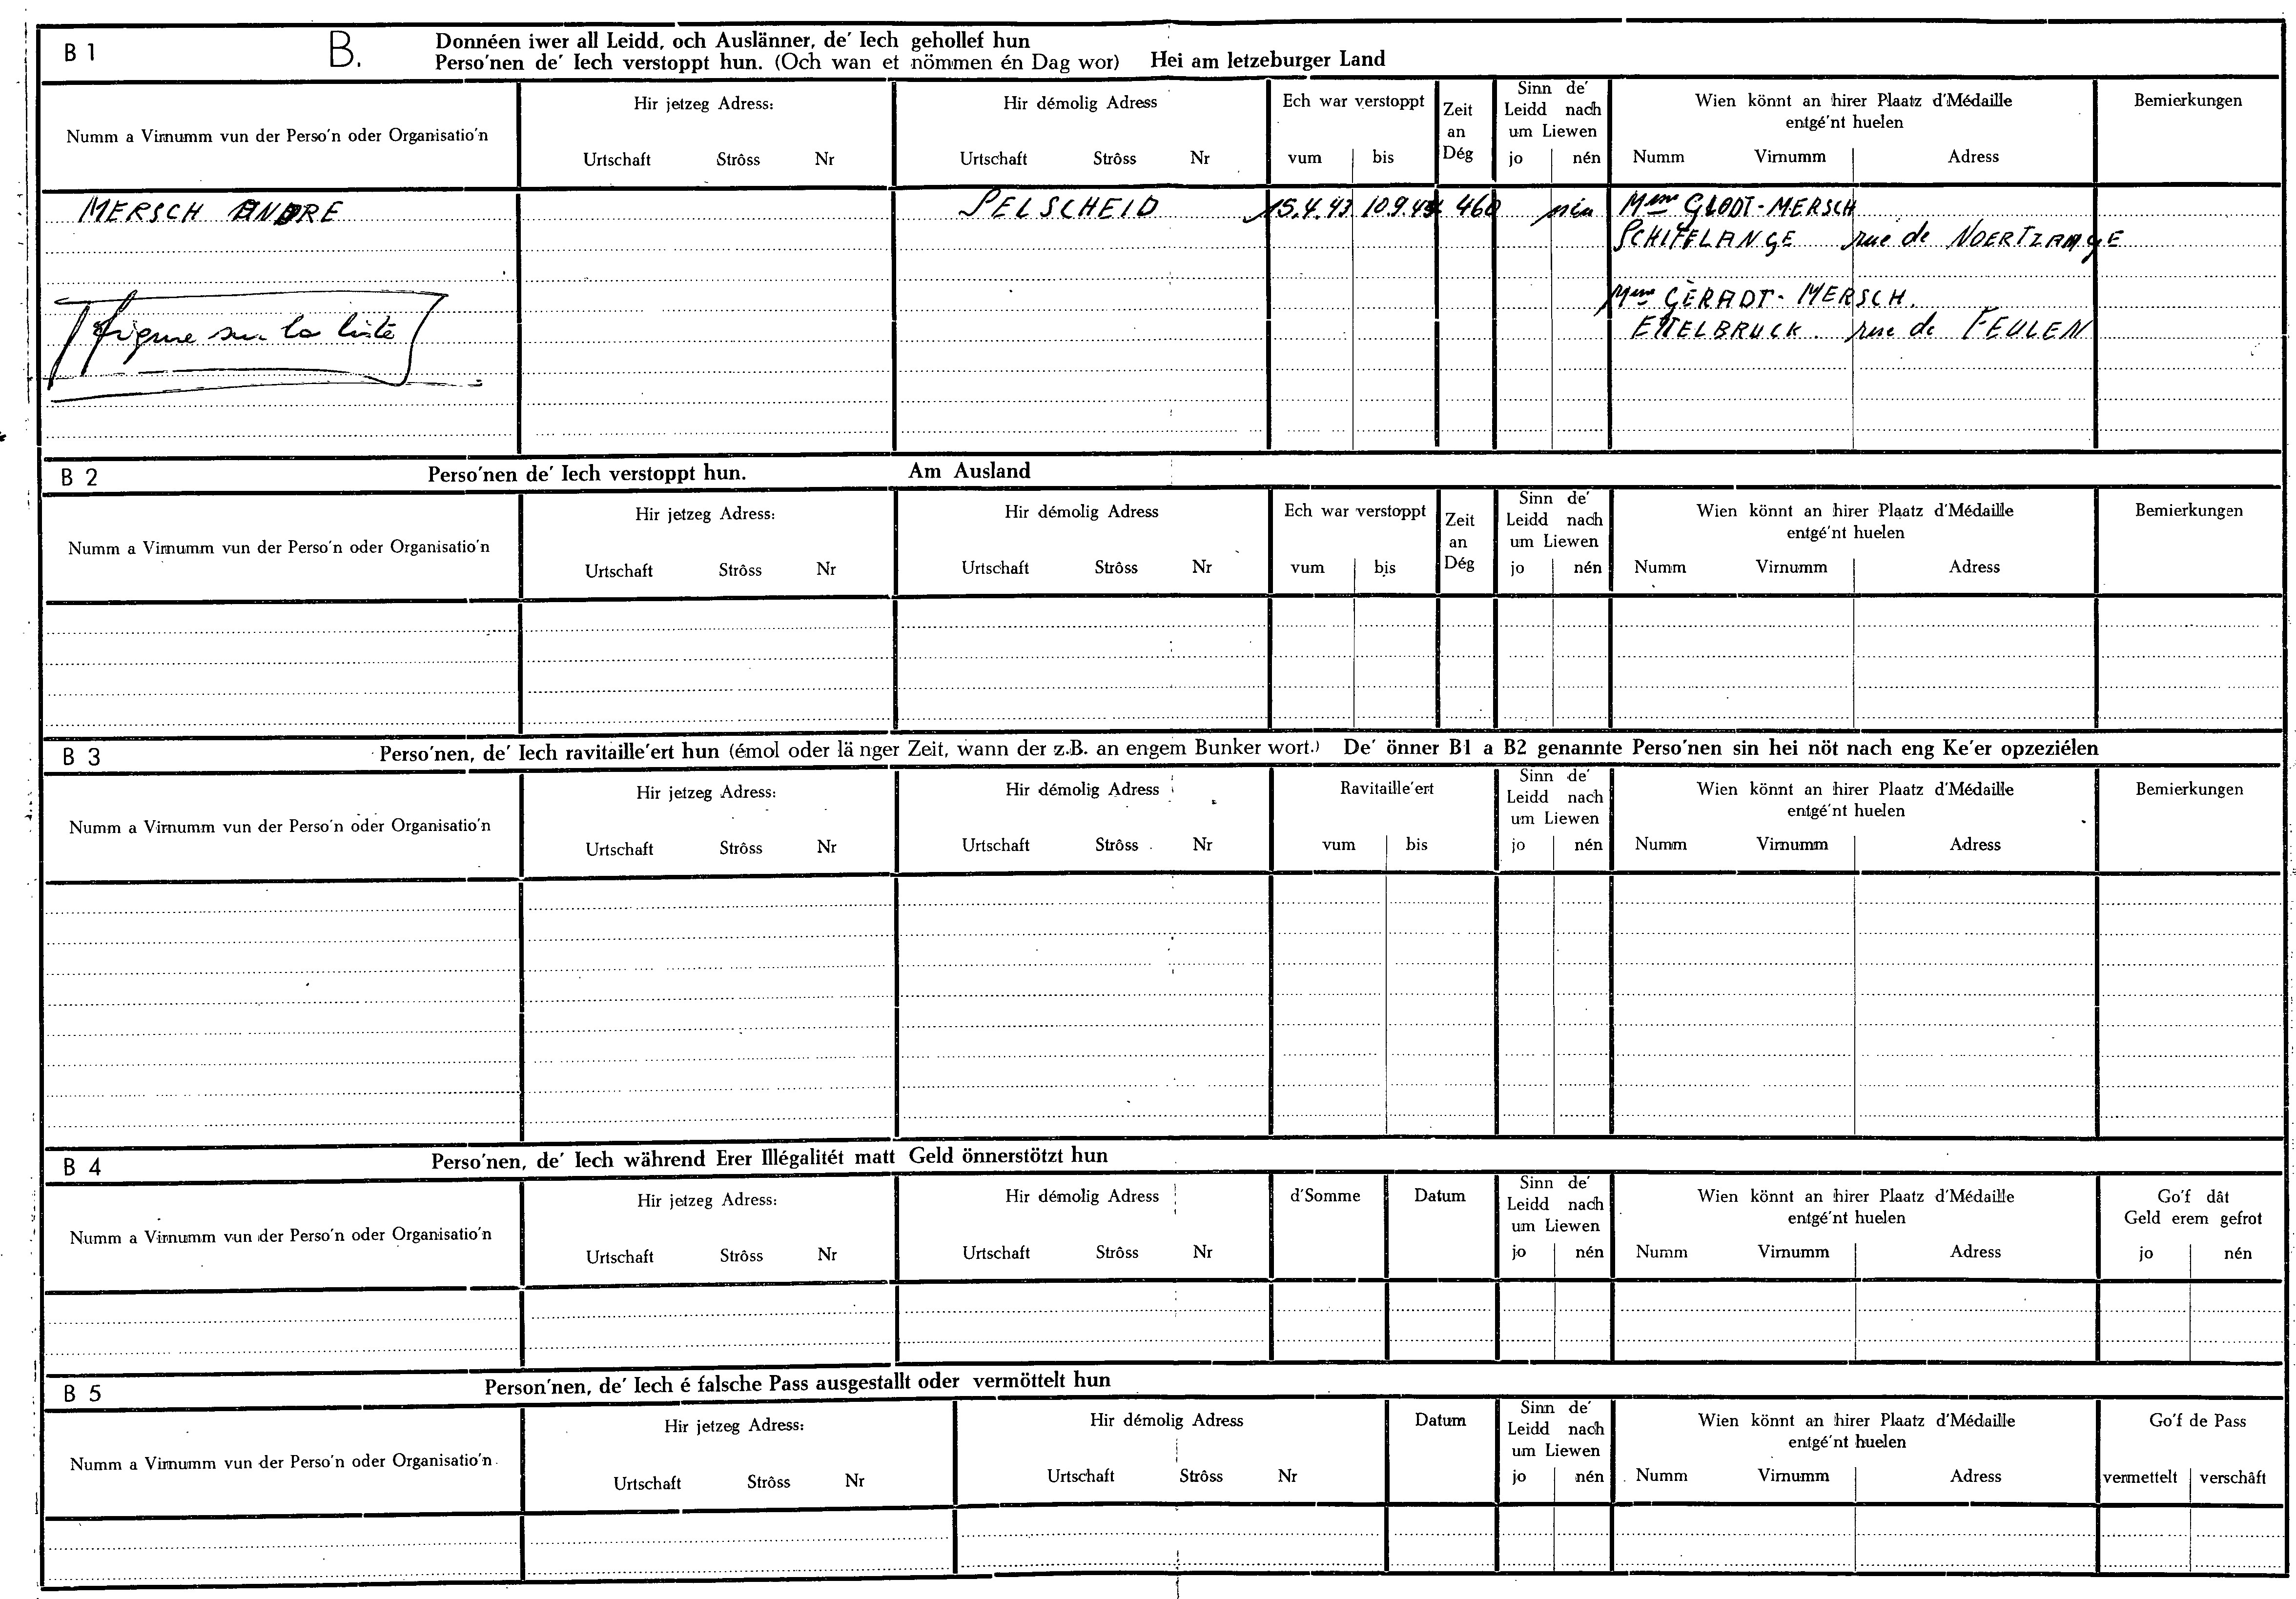 B 1 B. Donnéen iwer all Leidd, och Auslänner, de' Iech gehollef hun
Perso'nen de' Iech verstoppt hun. (Och wan et nömmen én Dag wor) Hei am letzeburger Land
Numm a Virnumm vun der Perso'n oder Organisatio'n
Hir jetzeg Adress:
Urtschaft Strôss Nr
Hir démolig Adress
Urtschaft Strôss Nr
Ech war verstoppt
vum bis
Zeit
an
Dég
Sinn de'
Leidd nach
um Liewen
jo nén
Wien könnt an hirer Plaatz d'Médaille
entgé'nt huelen
Numm Virnumm Adress
Bemierkungen
MERSCH ANDRE SELSCHEID 15.4.43 10.9.44 460 nén Mme GLODT-MERSCH
SCHIFFLANGE rue de NOERTZANGE
Mme GÉRADT-MERSCH.
ETTELBRUCK. rue de FEULEN
figure sur la liste
B 2 Perso'nen de' Iech verstoppt hun. Am Ausland
Numm a Virnumm vun der Perso'n oder Organisatio'n
Hir jetzeg Adress:
Urtschaft Strôss Nr
Hir démolig Adress
Urtschaft Strôss Nr
Ech war verstoppt
vum bis
Zeit
an
Dég
Sinn de'
Leidd nach
um Liewen
jo nén
Wien könnt an hirer Plaatz d'Médaille
entgé'nt huelen
Numm Virnumm Adress
Bemierkungen
B 3 Perso'nen, de' Iech ravitaille'ert hun (émol oder länger Zeit, wann der z.B. an engem Bunker wort.) De' önner B1 a B2 genannte Perso'nen sin hei nöt nach eng Ke'er opzeziélen
Numm a Virnumm vun der Perso'n oder Organisatio'n
Hir jetzeg Adress:
Urtschaft Strôss Nr
Hir démolig Adress
Urtschaft Strôss Nr
Ravitaille'ert
vum bis
Sinn de'
Leidd nach
um Liewen
jo nén
Wien könnt an hirer Plaatz d'Médaille
entgé'nt huelen
Numm Virnumm Adress
Bemierkungen
B 4 Perso'nen, de' Iech während Erer Illégalitét matt Geld önnerstötzt hun
Numm a Virnumm vun der Perso'n oder Organisatio'n
Hir jetzeg Adress:
Urtschaft Strôss Nr
Hir démolig Adress
Urtschaft Strôss Nr
d'Somme
Datum
Sinn de'
Leidd nach
um Liewen
jo nén
Wien könnt an hirer Plaatz d'Médaille
entgé'nt huelen
Numm Virnumm Adress
Go'f dât
Geld erem gefrot
jo nén
B 5 Person'nen, de' Iech é falsche Pass ausgestallt oder vermöttelt hun
Numm a Virnumm vun der Perso'n oder Organisatio'n
Hir jetzeg Adress:
Urtschaft Strôss Nr
Hir démolig Adress
Urtschaft Strôss Nr
Datum
Sinn de'
Leidd nach
um Liewen
jo nén
Wien könnt an hirer Plaatz d'Médaille
entgé'nt huelen
Numm Virnumm Adress
Go'f de Pass
vermettelt verschâft